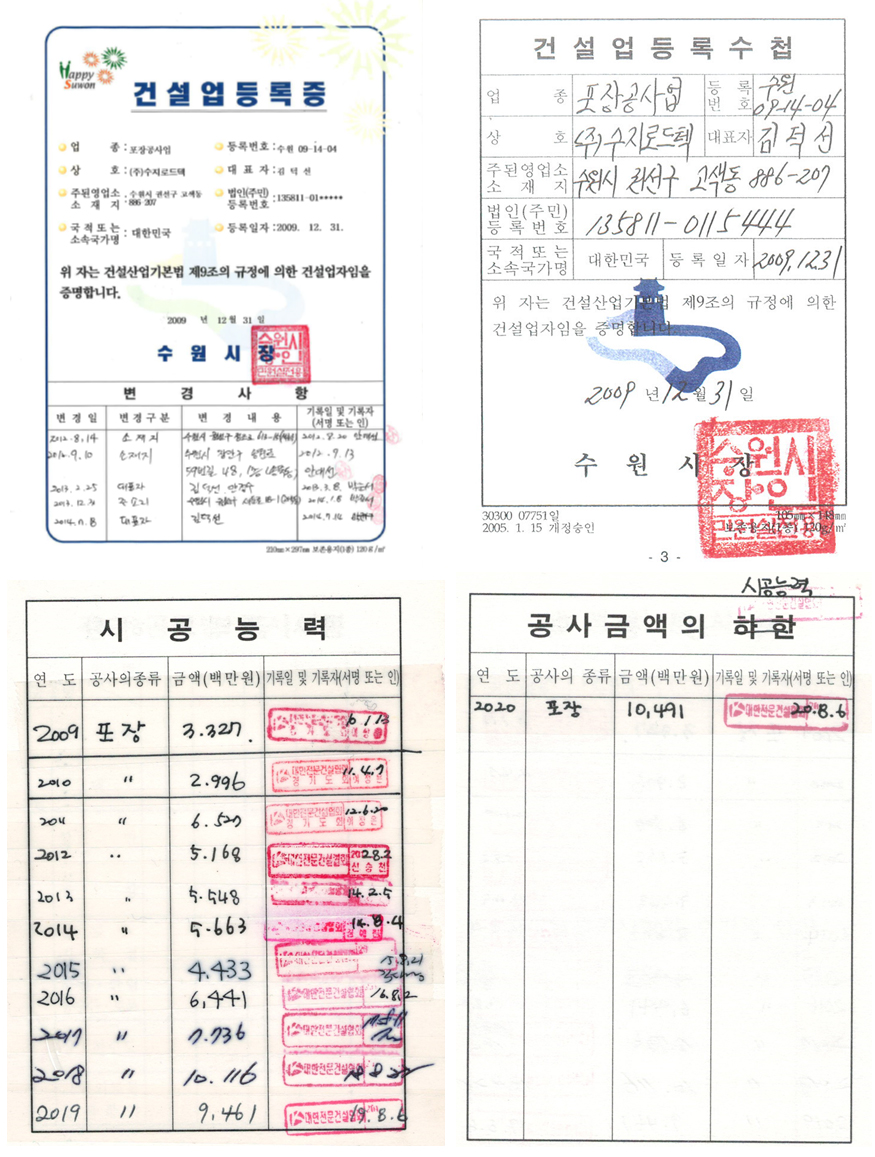 Happy
Suwon
건설업등록증
업 종 : 포장공사업
등록번호 : 수원 09-14-04
상 호 : (주)수지로드텍
대 표 자 : 김덕선
주된영업소
소 재 지 : 수원시 권선구 고색동
886-207
법인(주민)
등록번호 : 135811-01*****
국적 또는
소속국가명 : 대한민국
등록일자 : 2009. 12. 31.
위 자는 건설산업기본법 제9조의 규정에 의한 건설업자임을
증명합니다.
2009 년 12월 31일
수 원 시 장
변 경 사 항
변 경 일 변경구분 변 경 내 용 기록일 및 기록자
(서명 또는 인)
2012.8.14 소재지 수원시 2012.8.20
9.10 소재지 수원시 2012.9.13
2013.2.25 대표자 2013.3.8
대표자 김덕선
210㎜×297㎜ 보존용지(1종) 120g/㎡
건설업등록수첩
업 종 포장공사업
등 록
번 호
수원
09-14-04
상 호 (주)수지로드텍 대표자 김덕선
주된영업소
소 재 지
수원시 권선구 고색동 886-207
법인(주민)
등록번호
135811-0115444
국적 또는
소속국가명
대한민국 등록일자 2009.12.31
위 자는 건설산업기본법 제9조의 규정에 의한
건설업자임을 증명합니다.
2009 년 12월 31일
수 원 시 장
30300 07751일
2005. 1. 15 개정승인
105㎜×148㎜
- 3 -
시 공 능 력
연 도 공사의종류 금액(백만원) 기록일 및 기록자(서명 또는 인)
2009 포장 3.327.
2010 〃 2.996 11.4.7
〃 12.6.20
2012 〃 5.168
2013 〃 5.548 14.2.5
2014 〃 5.663 14.8.4
2015 〃 4.433
2016 〃 6,441 16.8.2
2017 〃 7.736
2018 〃 10.116
2019 〃 9,461 19.8.6
시공능력
공사금액의 하한
연 도 공사의 종류 금액(백만원) 기록일 및 기록자(서명 또는 인)
2020 포장 10,491 대한전문건설협회 20.8.6